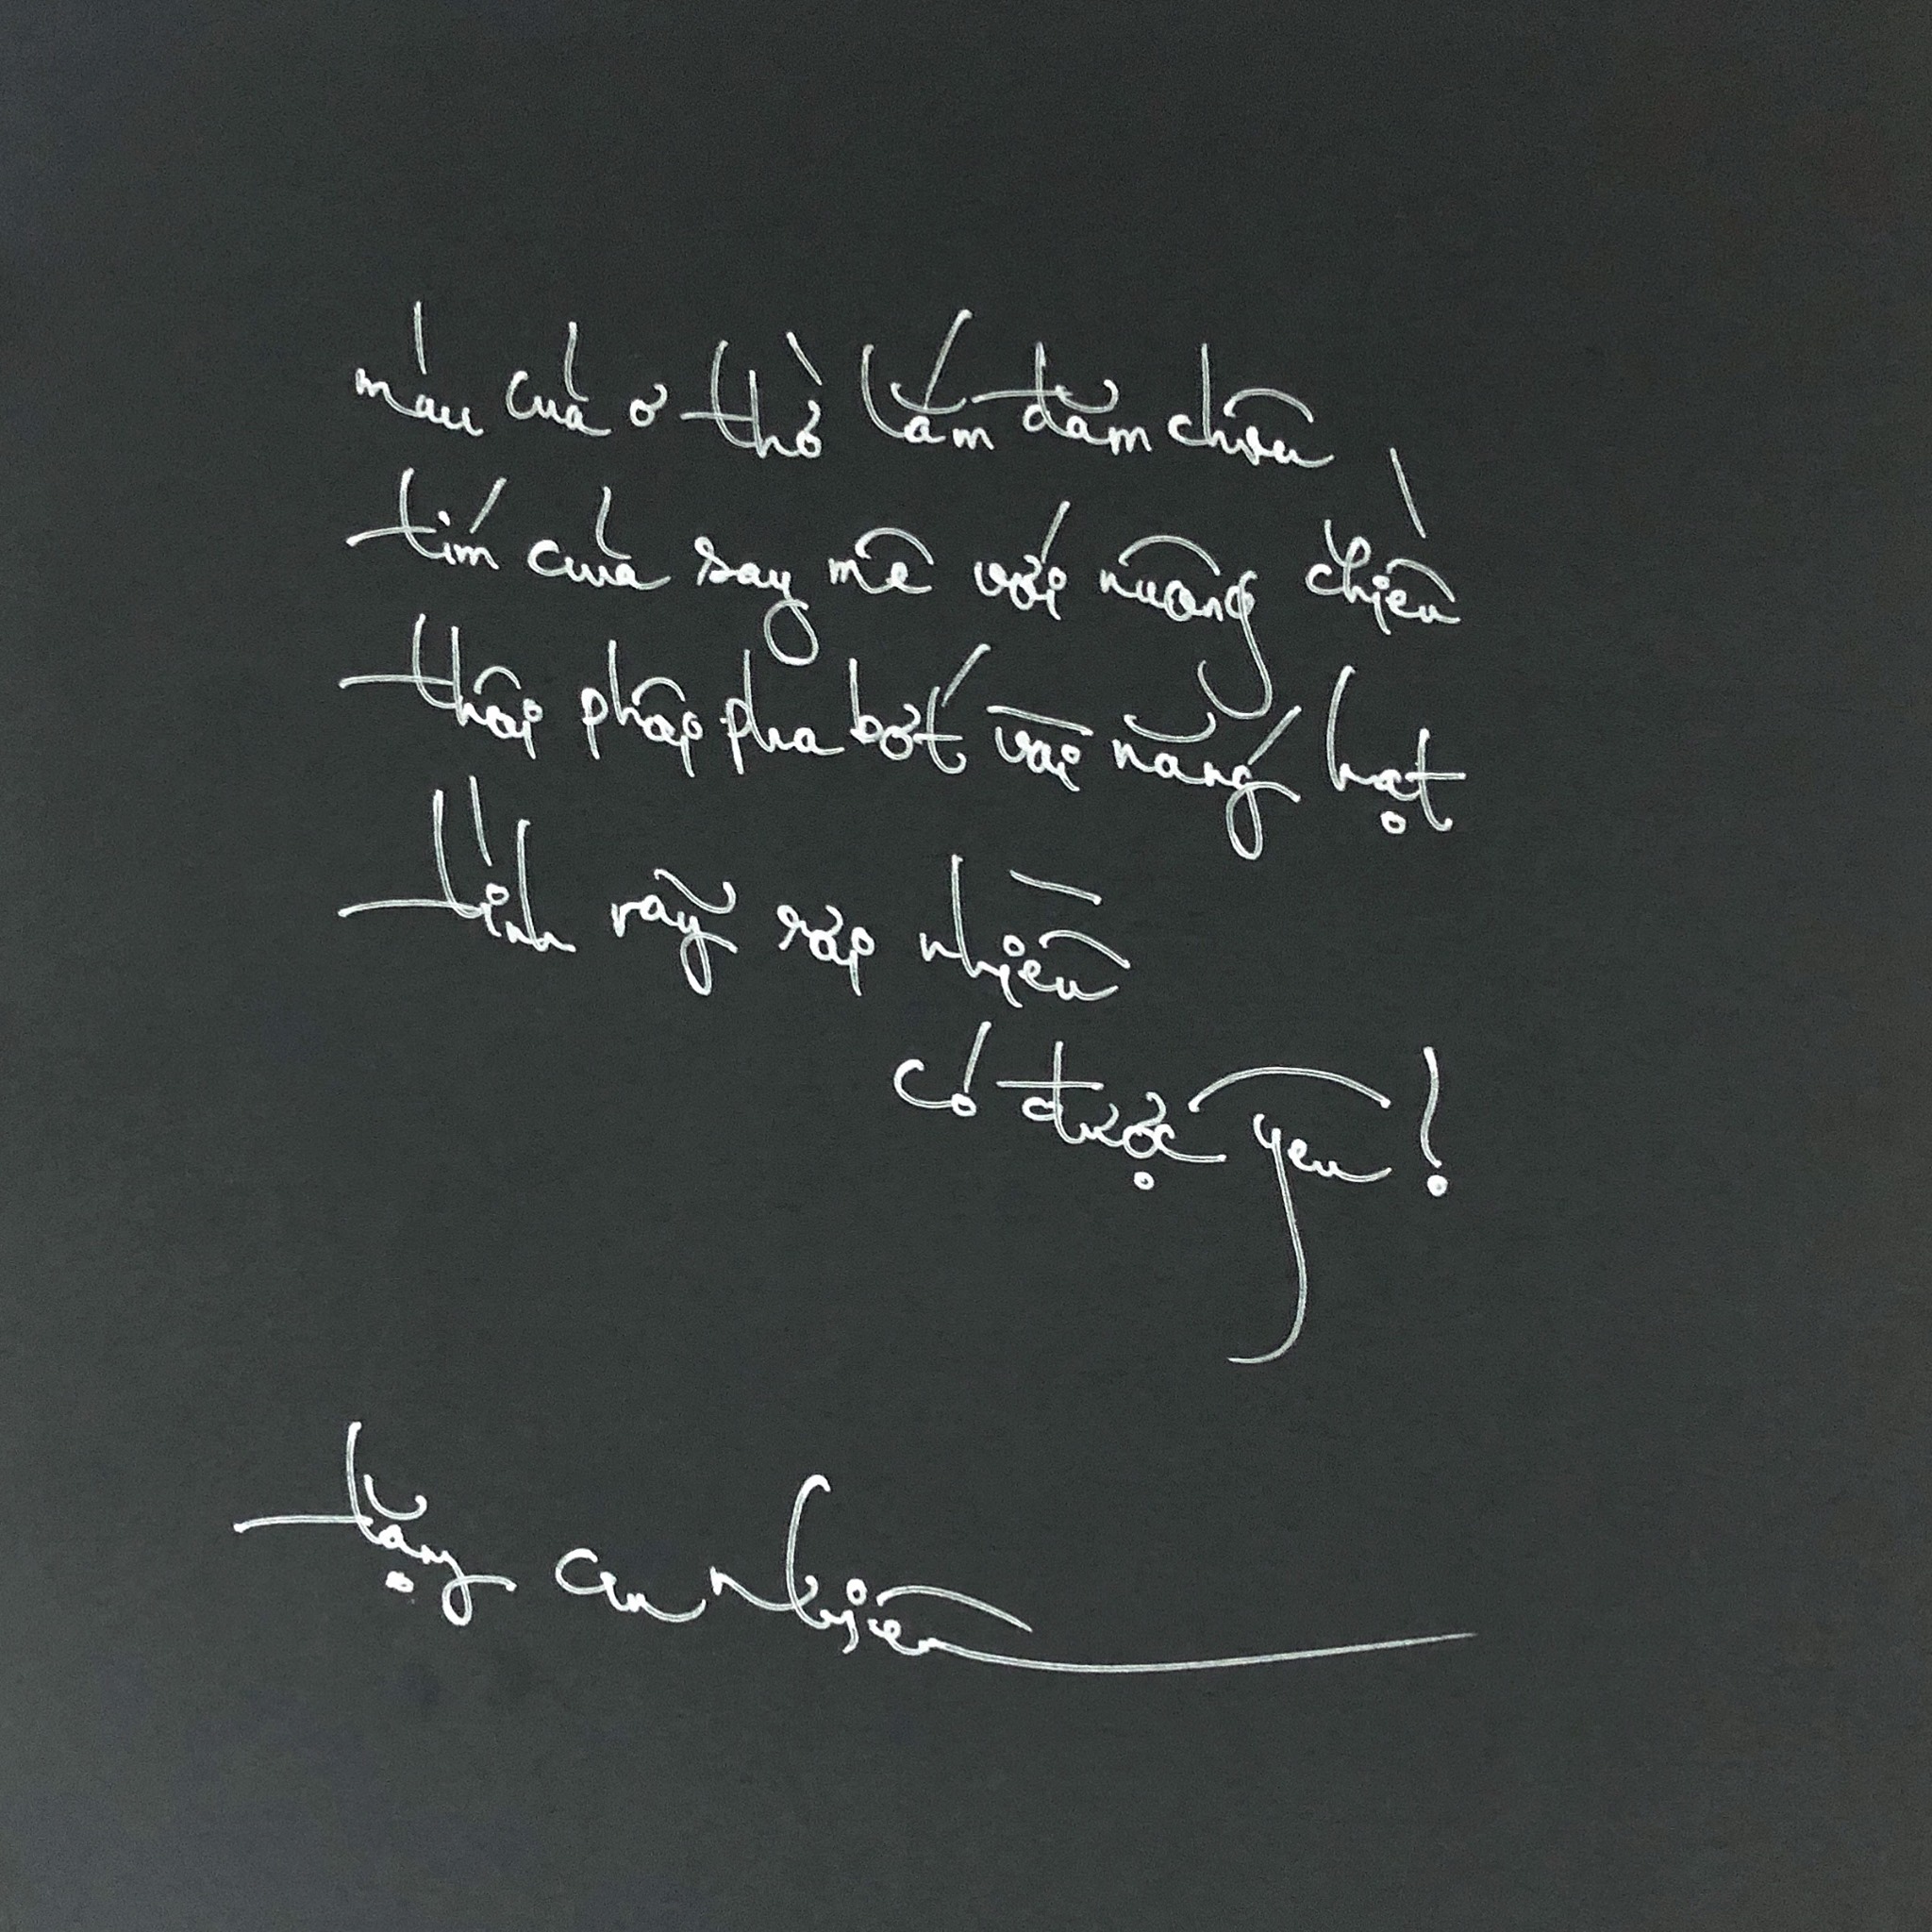 màu của ơ thờ lấm đẫm chiều
tím của say mê với nuông chiều
thôi phôi pha bớt vài nắng hạt
tình rẫy rạp nhiều
có được yêu!
tặng an nhiên